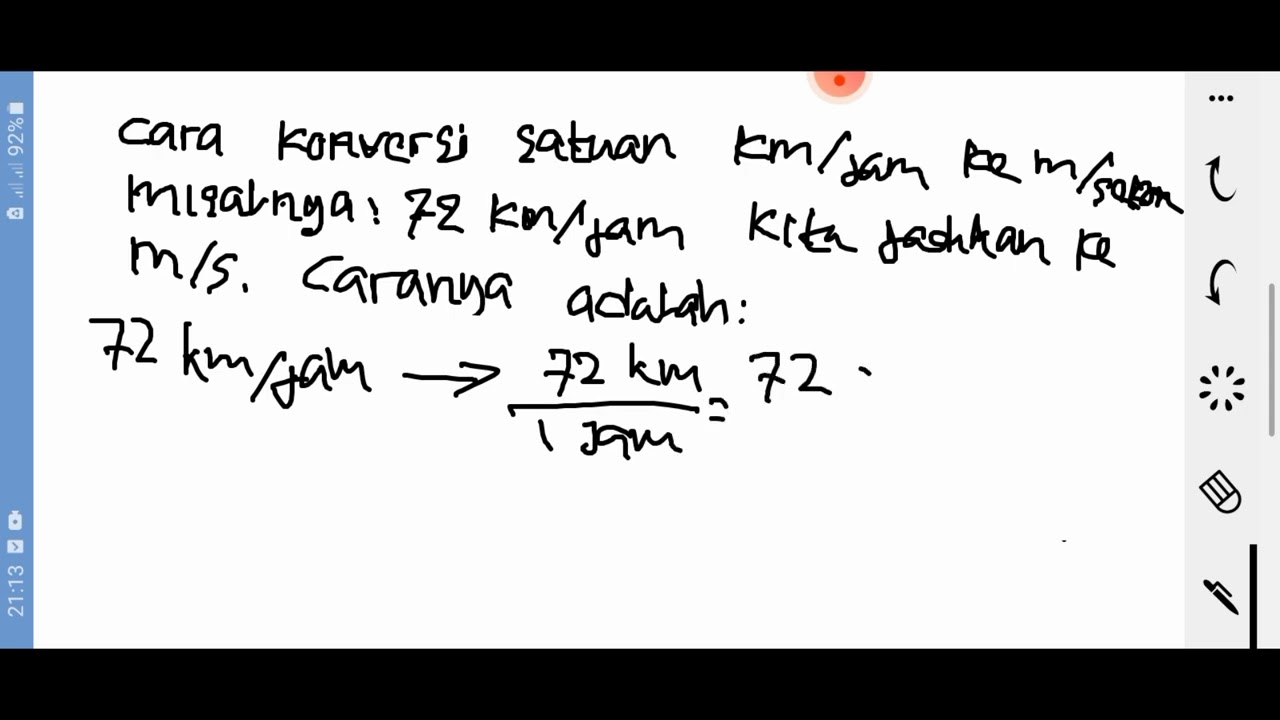 cara konversi satuan km/jam ke m/sekon
misalnya: 72 km/jam kita jadikan ke
m/s. Caranya adalah:
72 km/jam → 72 km/1 jam = 72 ·
92%
21:13